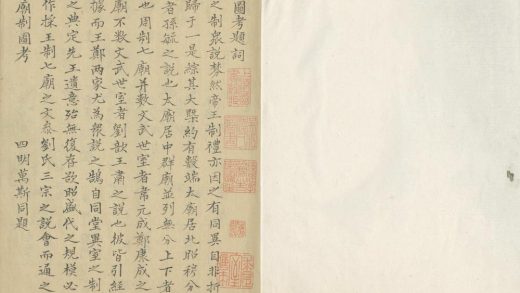 圖考題詞
之制衆說棼然帝王制禮亦因之有同異自非折
歸于一是綜其大槩約有數端太廟居北昭穆分
者孫毓之說也太廟居中群廟並列無分上下者
也周制七廟并數文武世室者韋元成鄭康成之
廟不數文武世室者劉歆王肅之說也彼皆引經
據而王鄭兩家尤為衆說之鵠自同堂異室之制
之典定先王遺意殆無復存欲昭盛代之規模必
作採王制七廟之文叅劉氏三宗之說會而通之
廟制圖考 四明萬斯同題